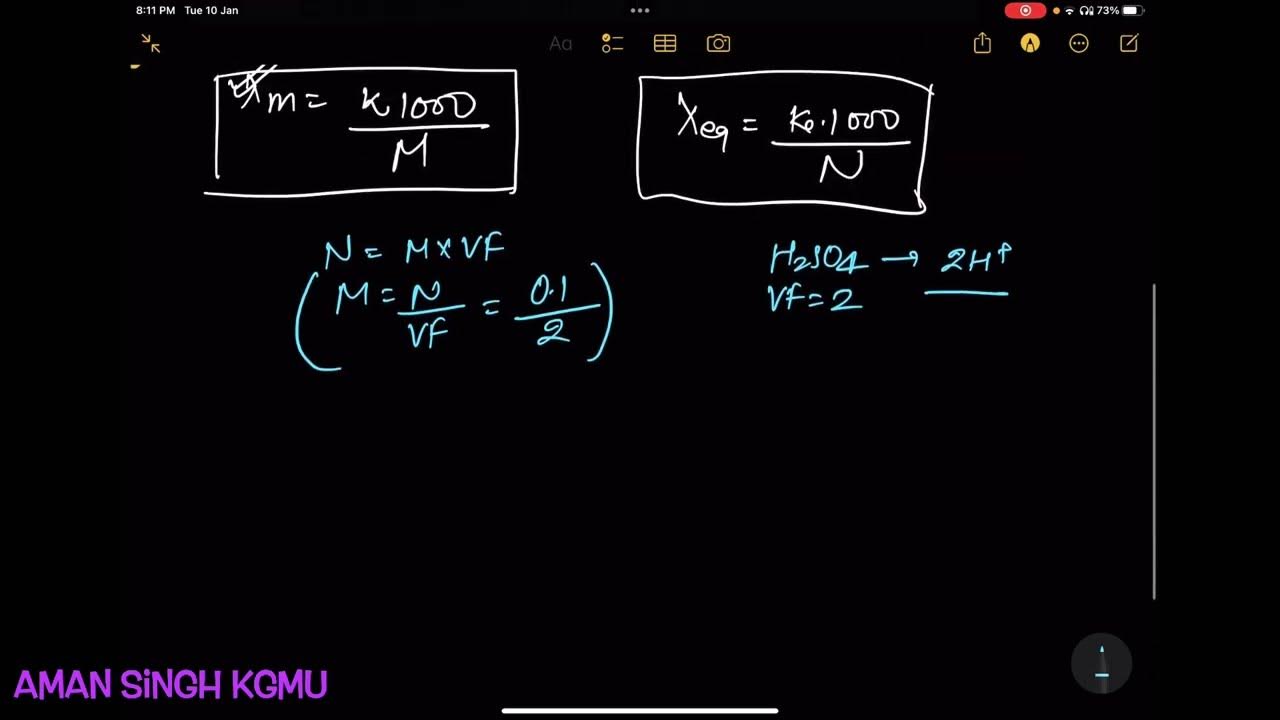 8:11 PM Tue 10 Jan
73%
Aa
λm = K 1000 / M
λeq = K.1000 / N
N = M x VF
(M = N / VF = 0.1 / 2)
H2SO4 → 2H+
VF = 2
AMAN SiNGH KGMU